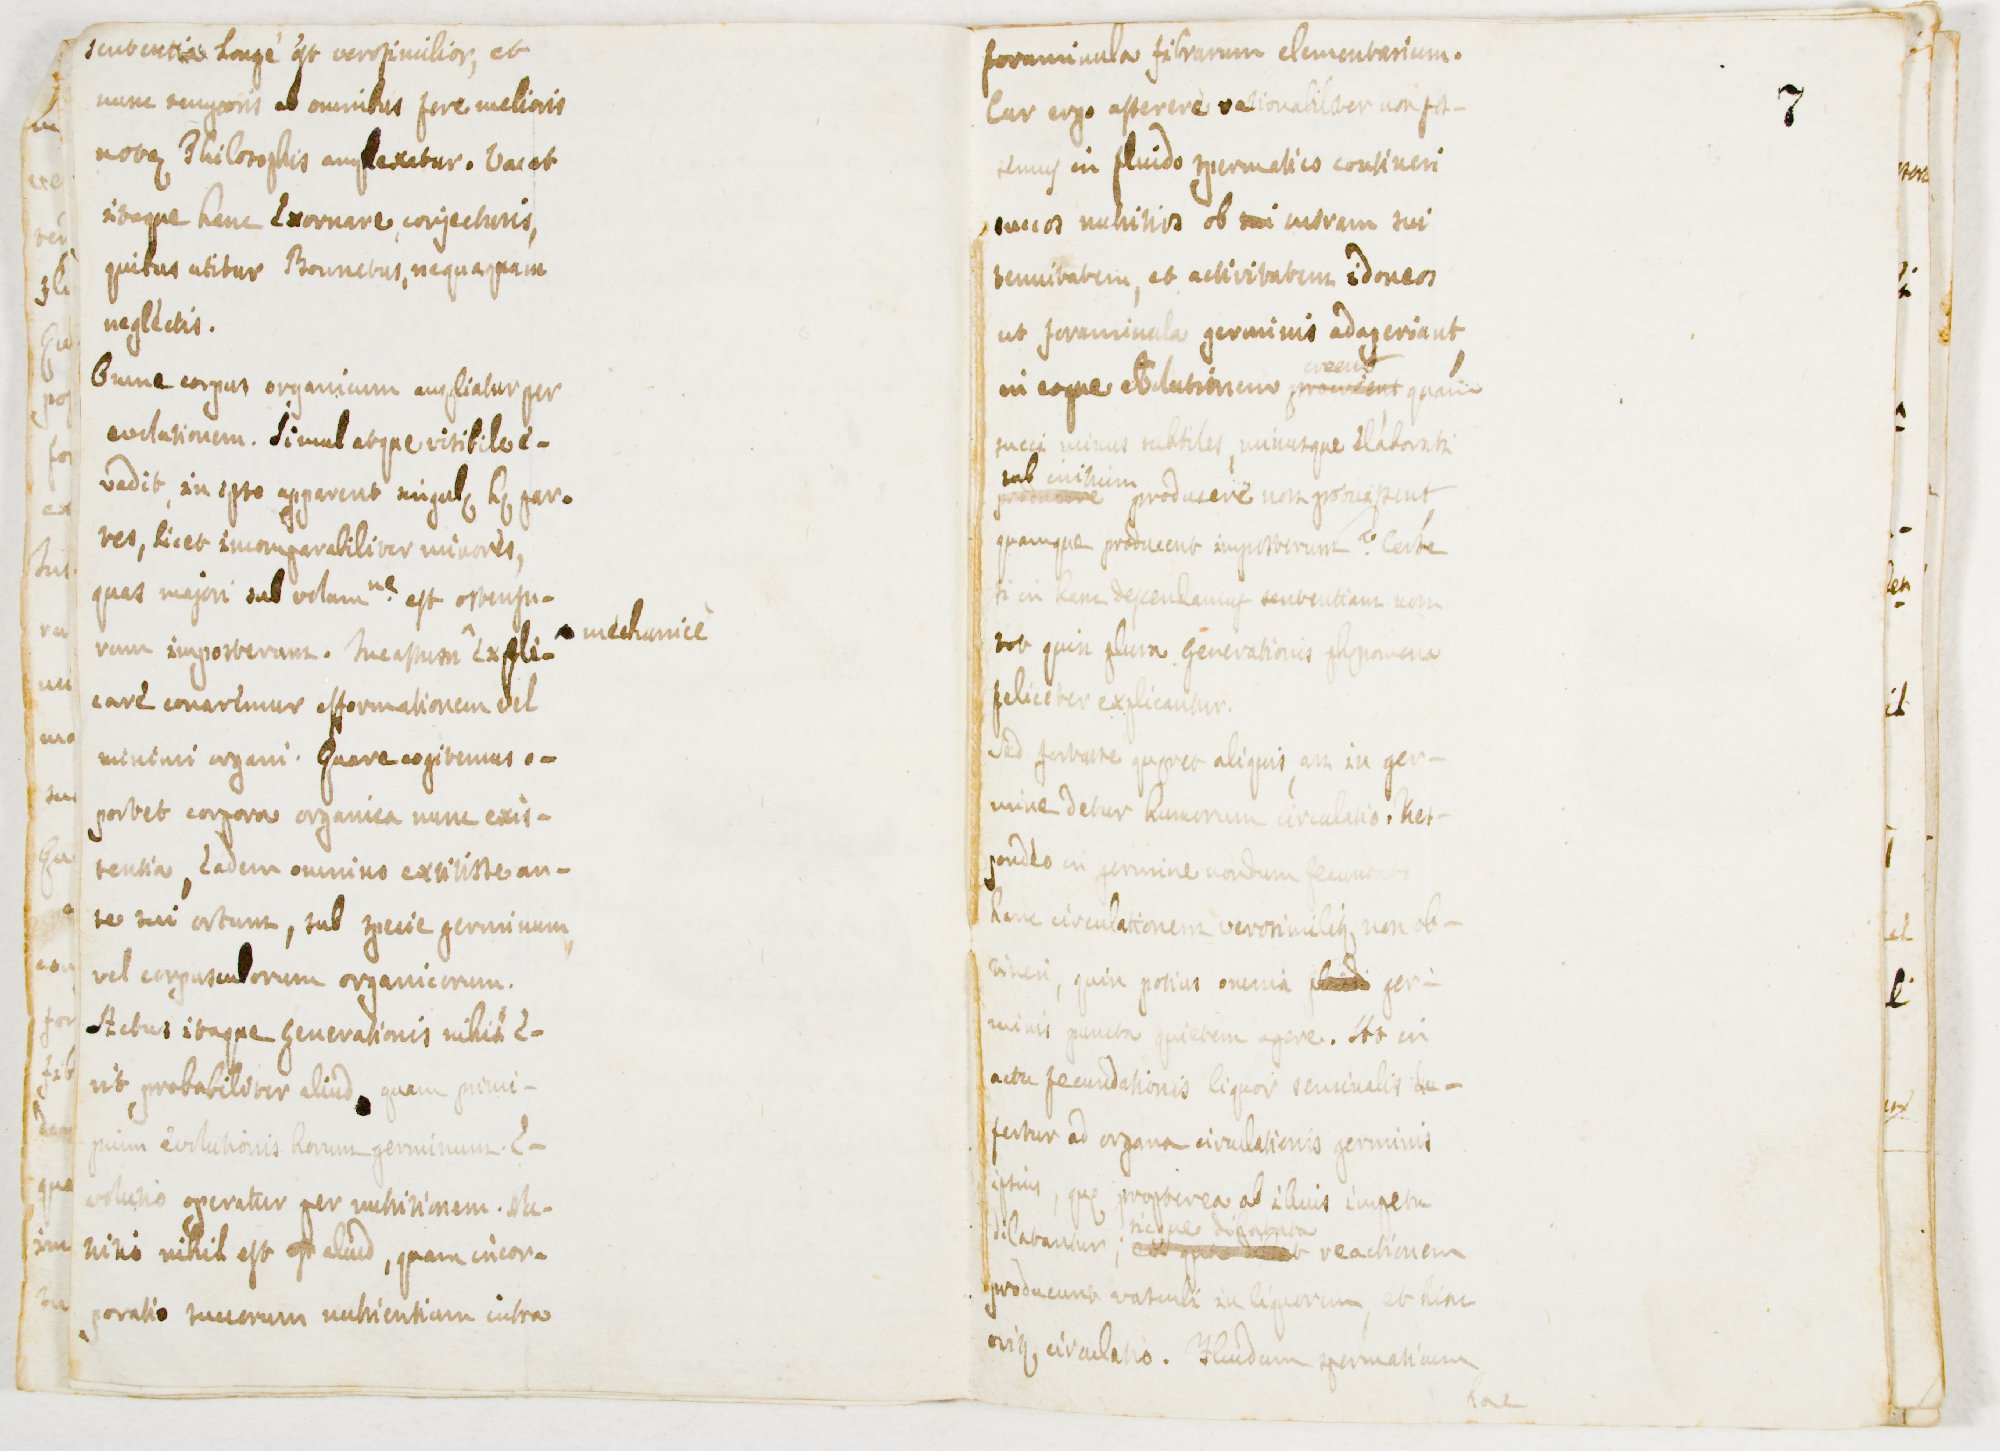 sententia longè est verosimilior, et
nunc temporis ab omnibus fere melioris
notæ Philosophis amplexatur. Vacet
itaque hanc exornare conjecturis,
quibus utitur Bonnetus, nequaquam
neglectis.
Omne corpus organicum ampliatur per
evolutionem. Simul atque visibile e-
vadit, in ipso apparent singulæ hæ par-
tes, licet incomparabiliter minores,
quas majori sub volumne est ostensu-
rum imposterum. Incassum expli-
mechanicè
care conaremur efformationem vel
minimi organi. Quare cogitemus o-
portet corpora organica nunc exis-
tentia, eadem omnino extitisse an-
te sui ortum, sub specie germinum,
vel corpusculorum organicorum.
Actus itaque generationis nihil e-
rit probabiliter aliud, quam princi-
pium evolutionis horum germinum. E-
volutio operatur per nutritionem. Nu-
tritio nihil est aliud, quam incor-
poratio succorum nutrientium intra
foraminula fibrarum elementarium.
7
Cur ergo asserere rationabiliter non pos-
semus in fluido spermatico contineri
succos nutritios ob miram sui
tenuitatem, et activitatem idoneos
ut foraminula germinis adaperiant
in eoque evolutionem quam
creent
succi minus subtiles, minusque elaborati
sub initium
producere non potuissent,
quamque producent imposterum? Certe
si in hanc descendamus sententiam non
tot quin plura generationis phænomena
feliciter explicantur.
Sed fortasse quæret aliquis, an in ger-
mine detur humorum circulatio. Res-
pondeo in germine nondum fecundato
hanc circulationem verosimiliter non ob-
tineri, quin potius omnia ger-
minis puncta quietem agere. At in
actu fecundationis liquor seminalis de-
fertur ad organa circulationis germinis
ipsius, quæ propterea ab illius impetu
sicque dilatata
dilatantur; reactionem
producunt vasculi in liquorem, et hinc
oritur circulatio. Fluidum spermaticum
hac